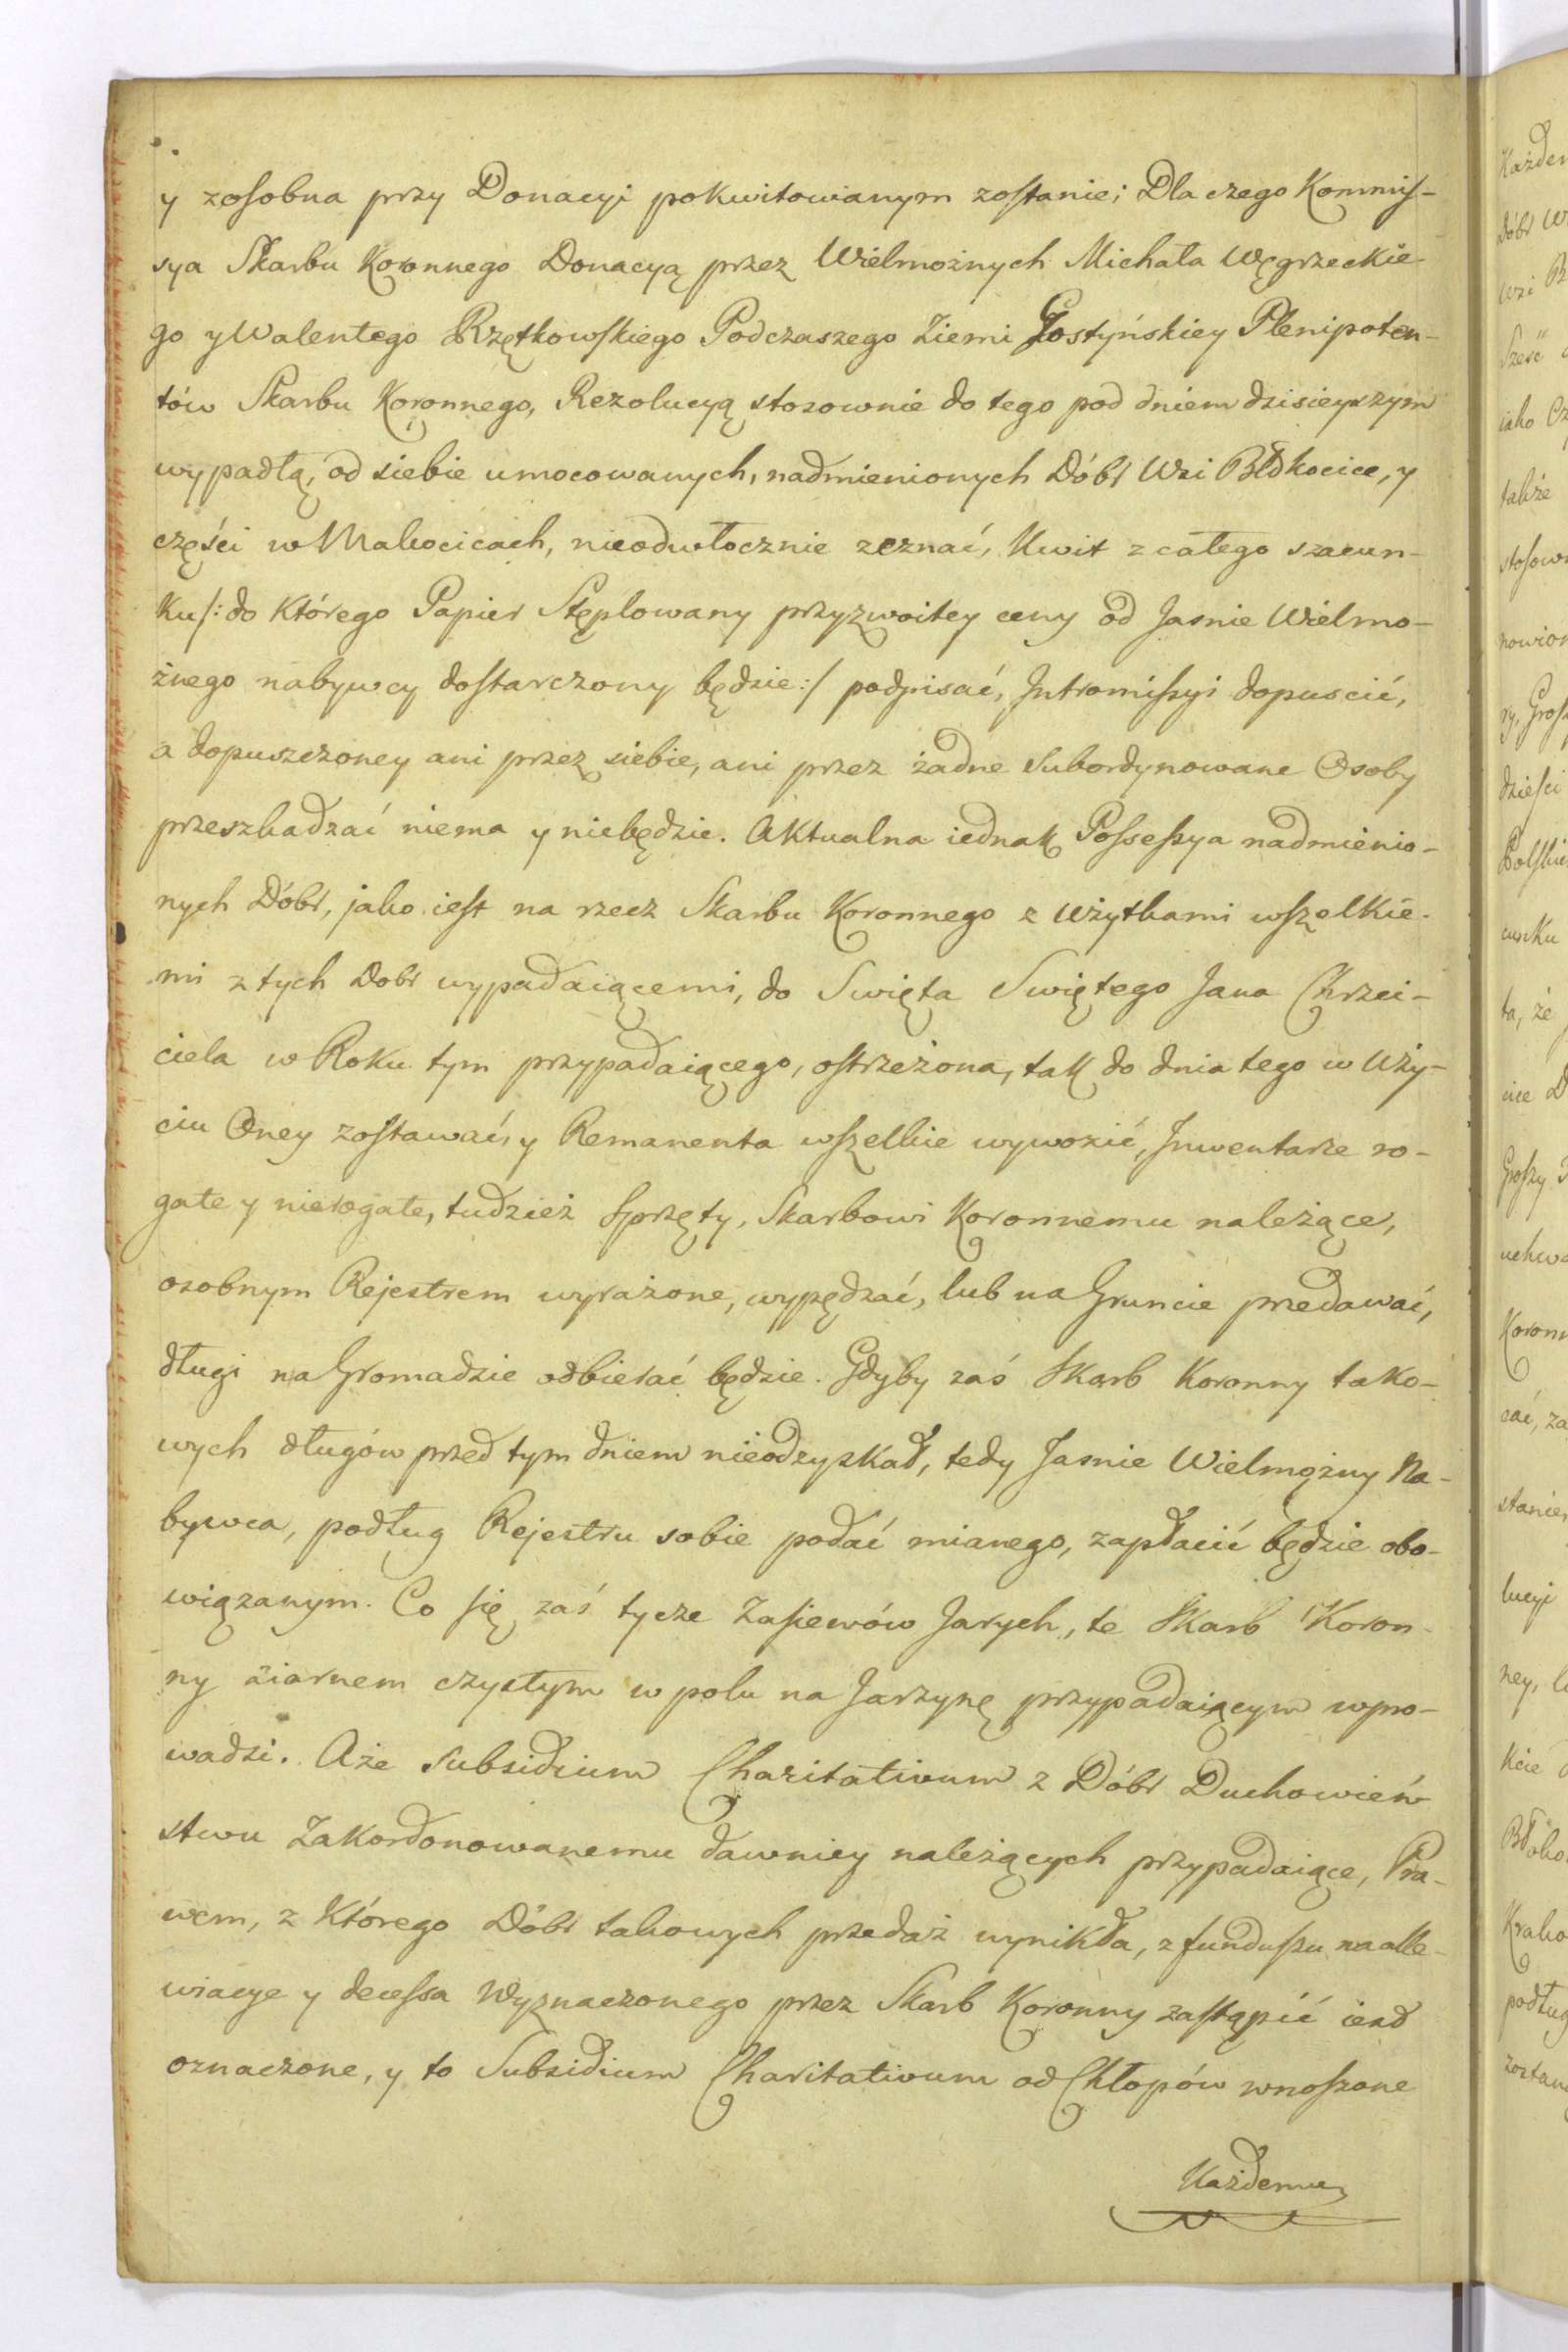 y zosobna przy Donacyi pokwitowanym zostanie; Dla czego Kommis-
sya Skarbu Koronnego Donacyą przez Wielmożnych Michała Węgrzeckie-
go y Walentego Rzętkowskiego Podczaszego Ziemi Gostyńskiey Plenipoten-
tów Skarbu Koronnego, Rezolucyą stosownie do tego pod dniem dzisieyszym
wypadłą, od siebie umocowanych, nadmienionych Dóbr Wsi Błokocice, y
części w Makocicach, nieodwłocznie zeznać, Kwit z całego szacun-
ku /: do którego Papier Stęplowany przyzwoitey ceny od Jasnie Wielmo-
żnego nabywcy dostarczony będzie :/ podpisać, Intromissyi dopuscić,
a dopuszczoney ani przez siebie, ani przez żadne subordynowane Osoby
przeszkadzać niema y niebędzie. Aktualna iednak Possessya nadmienio-
nych Dóbr, jako iest na rzecz Skarbu Koronnego z użytkami wszelkie-
mi z tych Dobr wypadaiącemi, do Swięta Swiętego Jana Chrzci-
ciela w Roku tym przypadaiącego, ostrzeżona, tak do dnia tego w uży-
ciu Oney zostawać, y Remanenta wszelkie wywozić, Inwentarze ro-
gate y nierogate, tudzież sprzęty, Skarbowi Koronnemu należące,
osobnym Rejestrem wyrażone, wypędzać, lub na Gruncie przedawać,
długi na Gromadzie odbierać będzie. Gdyby zaś Skarb Koronny tako-
wych długów przed tym dniem nieodzyskał, tedy Jasnie Wielmożny Na-
bywca, podług Rejestru sobie podać mianego, zapłacić będzie obo-
wiązanym. Co się zaś tycze Zasiewów Jarych, te Skarb Koron-
ny ziarnem czystym w polu na Jarzynę przypadaiącym wpro-
wadzi. Aże Subsidium Charitativum z Dóbr Duchowień
stwu Zakordonowanemu dawniey należących przypadaiące, Pra-
wem, z którego Dóbr takowych przedaż wynikła, z funduszu na alle-
wiacye y decessa Wyznaczonego przez Skarb Koronny zastąpić iest
oznaczone, y to Subsidium Charitativum od Chłopów wnoszone
Każdemu